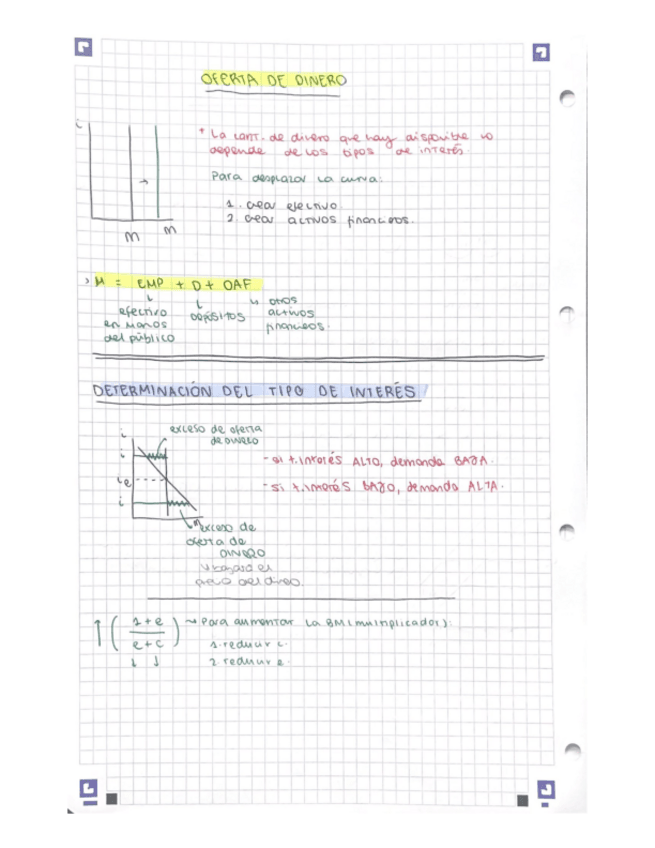 OFERTA DE DINERO
i
* La cant. de dinero que hay disponible no
depende de los tipos de interés.
Para desplazar la curva:
1. crear efectivo.
2. crear activos financieros.
m
m
M = EMP + D + OAF
efectivo
en manos
del público
depósitos
otros
activos
financieros.
DETERMINACIÓN DEL TIPO DE INTERÉS
exceso de oferta
de DINERO
i
i
ie
i
- si t.interés ALTO, demanda BAJA.
- si t.interés BAJO, demanda ALTA.
M
exceso de
oferta de
DINERO
↑ ( 1+e / e+c ) → Para aumentar la BM (multiplicador):
↓ ↓
1. reducir c.
2. reducir e.